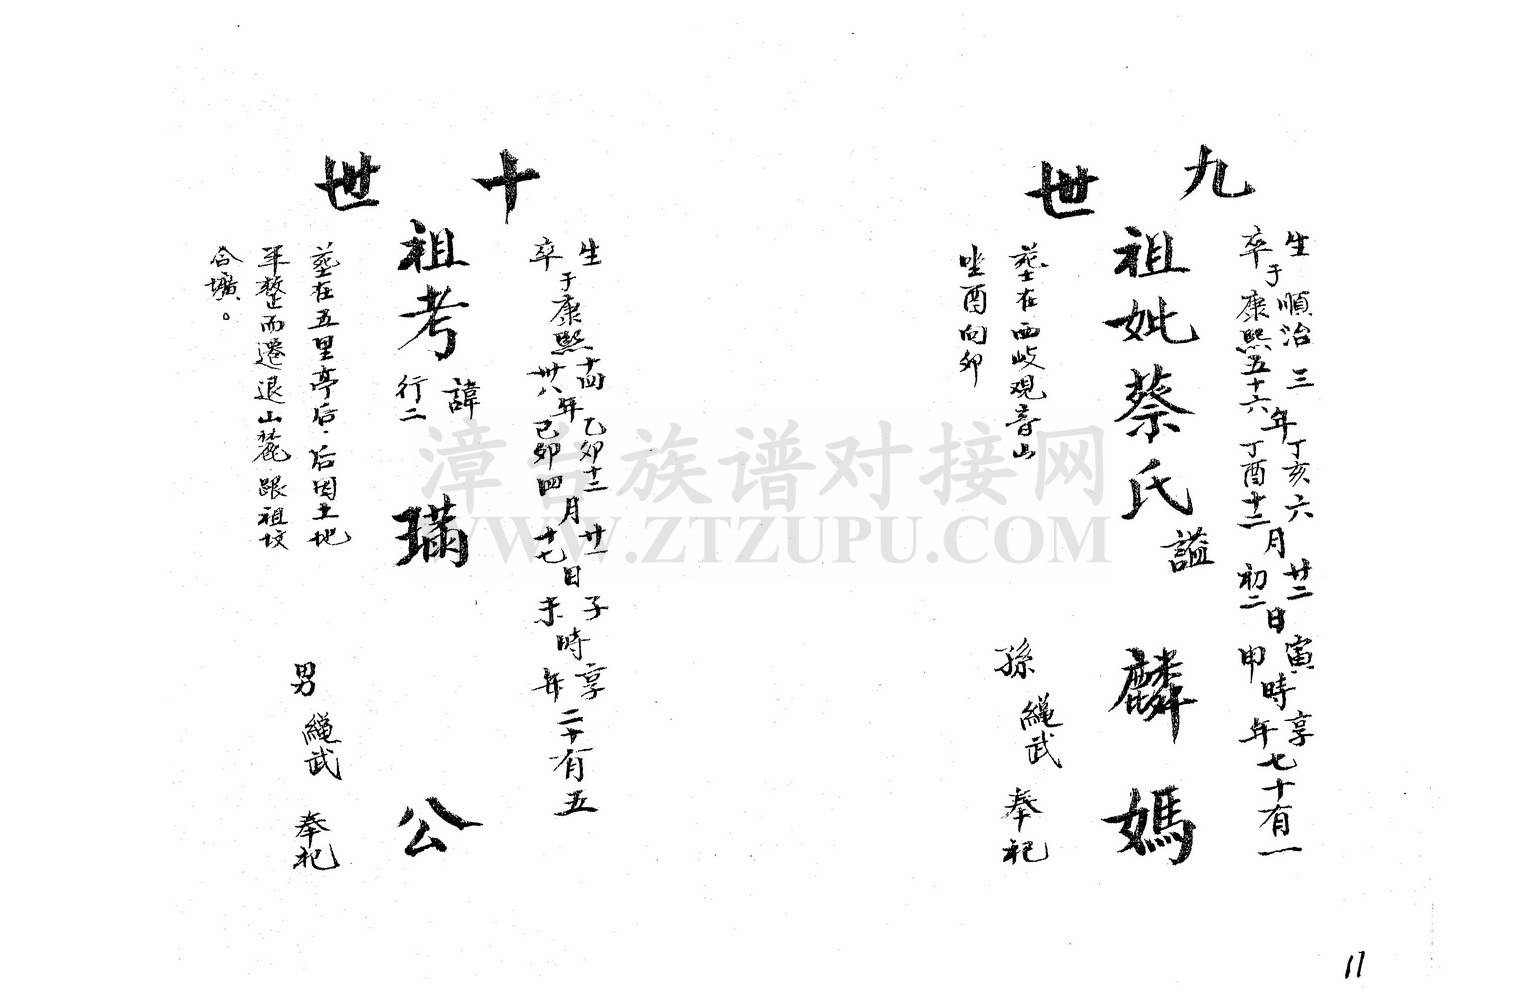 九世
生順治三年丁亥六月廿二日寅時享年七十有一
卒于康熙五十六年丁酉十二月初二日申時
祖妣蔡氏謚麟媽
孫繩武奉祀
塟在西岐观音山
坐酉向卯
十世
生于康熙十四年乙卯十二月廿一日子時享年二十有五
卒于康熙卅八年己卯四月十七日未時
祖考諱行二璊公
男繩武奉祀
塟在五里亭后.后因土地
平整而遷退山麓跟祖坟
合壙。
漳台族谱对接网
WWW.ZTZUPU.COM
11